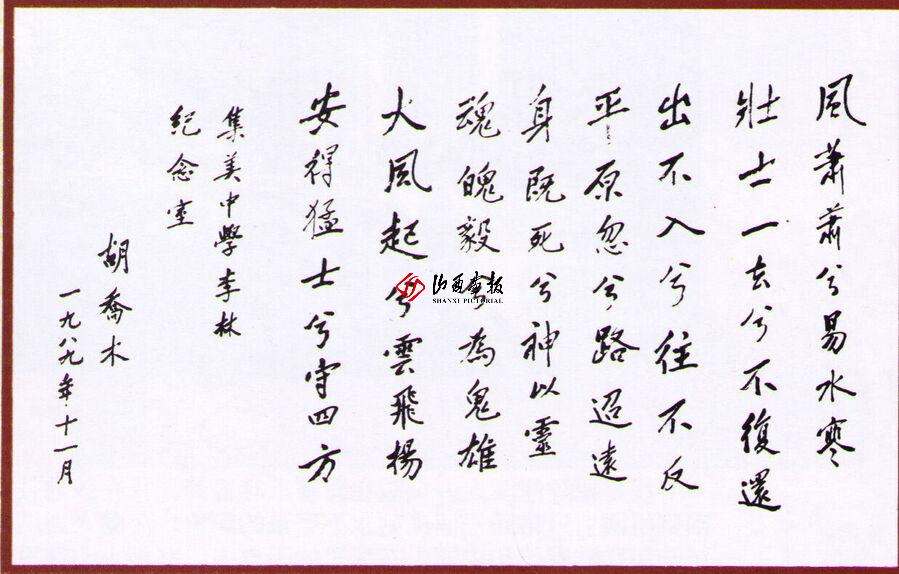 風蕭蕭兮易水寒
壯士一去兮不復還
出不入兮往不反
平原忽兮路迢遠
身既死兮神以靈
魂魄毅兮為鬼雄
大風起兮雲飛揚
安得猛士兮守四方
集美中學李林
紀念室
胡喬木
一九八九年十一月
山西画报
SHANXI PICTORIAL